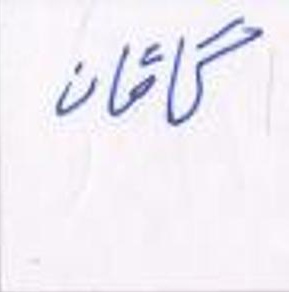 گاقان